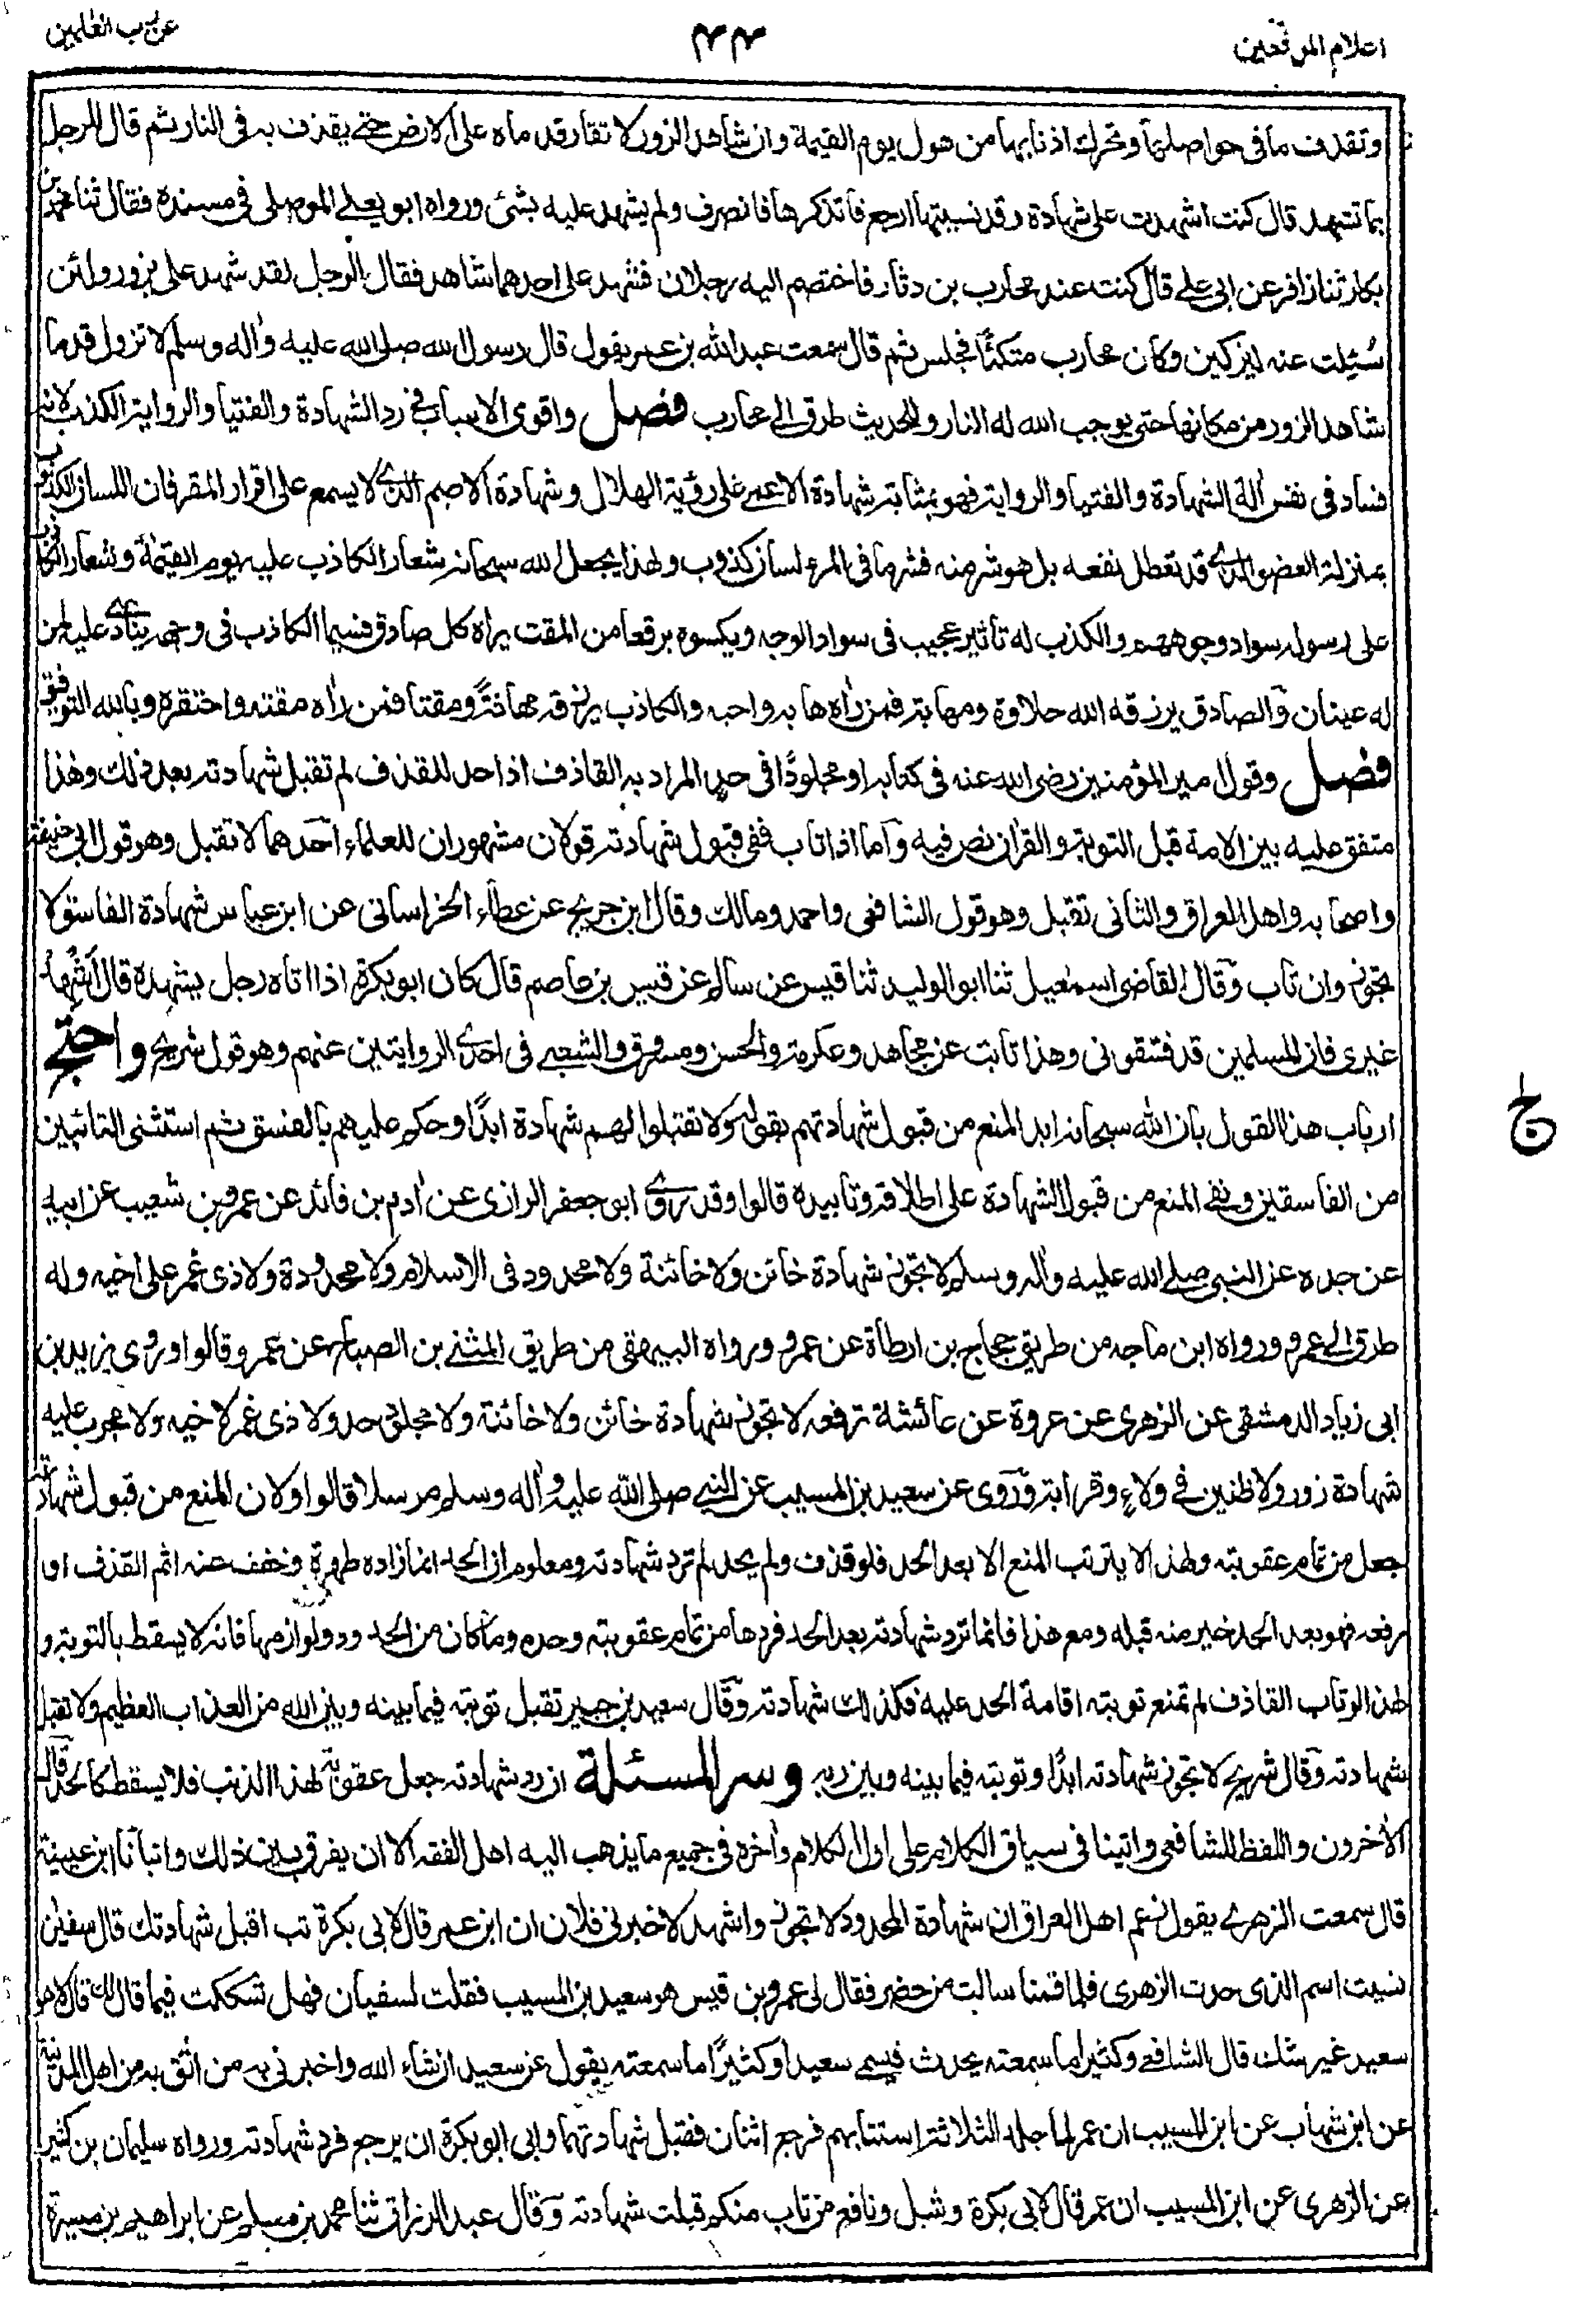 اعلام الموقعين
٤٤
عن رب العلمين
وتقذف ما فى حواصلها وتحرك اذنابها من هول يوم القيمة وان شاهد الزور لا تقار قدماه على الارض حتى يقذف به فى النار ثم قال للرجل
بما تشهد قال كنت اشهدت على شهادة وقد نسيتها ارجع فاتذكرها فانصرف ولم يشهد عليه بشئ ورواه ابو يعلى الموصلى فى مسنده فقال ثنا محمد بن
بكار ثنا زافر عن ابى على قال كنت عند محارب بن دثار فاختصم اليه رجلان فشهد على احدهما شاهد فقال الرجل لقد شهد على بزور ولئن
سُئِلت عنه ليزكين وكان محارب متكئًا فجلس ثم قال سمعت عبد الله بن عمر يقول قال رسول الله صلى الله عليه واٰله وسلم لا تزول قدما
شاهد الزور من مكانها حتى يوجب الله له النار وللحديث طرق الى محارب فصل واقوى الاسباب فى رد الشهادة والفتيا والرواية الكذب لانه
فساد فى نفس اٰلة الشهادة والفتيا والرواية فهو بمثابة شهادة الاعمى على رؤية الهلال وشهادة الاصم الذى لا يسمع على اقرار المقر فان اللسان الكذوب
بمنزلة العضو الذى قد تعطل نفعه بل هو شر منه فشر ما فى المرء لسان كذوب ولهذا يجعل الله سبحانه شعار الكاذب عليه يوم القيمة وشعار الكاذب
على رسوله سواد وجوههم والكذب له تاثير عجيب فى سواد الوجه ويكسوه برقعا من المقت يراه كل صادق فسيما الكاذب فى وجهه ينادى عليه لمن
له عينان والصادق يرزقه الله حلاوة ومهابة فمن رٰاه هابه واحبه والكاذب يرزقه مهانةً ومقتا فمن رٰاه مقته واحتقره وبالله التوفيق
فصل وقول امير المؤمنين رضى الله عنه فى كتابه او مجلودًا فى حد المراد به القاذف اذا حد للقذف لم تقبل شهادته بعد ذلك وهذا
متفق عليه بين الامة قبل التوبة والقراٰن نص فيه وأما اذا تاب ففى قبول شهادته قولان مشهوران للعلماء احدهما لا تقبل وهو قول ابى حنيفة
واصحابه واهل العراق والثانى تقبل وهو قول الشافعى واحمد ومالك وقال ابن جريج عن عطاء الخراسانى عن ابن عباس شهادة الفاسق لا
تجوز وان تاب وقال القاضى اسمعيل ثنا ابو الوليد ثنا قيس عن سالم عن قيس بن عاصم قال كان ابو بكرة اذا اتاه رجل يشهده قال أشهد
غيرى فان المسلمين قد فسقونى وهذا ثابت عن مجاهد وعكرمة والحسن ومسروق والشعبى فى احدى الروايتين عنهم وهو قول شريح واحتج
ارباب هذا القول بان الله سبحانه ابد المنع من قبول شهادتهم بقوله ولا تقبلوا لهم شهادة ابدًا وحكم عليهم بالفسق ثم استثنى التائبين
من الفاسقين وبقى المنع من قبول الشهادة على اطلاقه وتابيده قالوا وقد روى ابو جعفر الرازى عن اٰدم بن فائد عن عمرو بن شعيب عن ابيه
عن جده عن النبى صلى الله عليه واٰله وسلم لا تجوز شهادة خائن ولا خائنة ولا محدود فى الاسلام ولا محدودة ولا ذى غمر على اخيه وله
طرق الى عمرو ورواه ابن ماجه من طريق حجاج بن ارطأة عن عمرو ورواه البيهقى من طريق المثنى بن الصباح عن عمرو قالوا وروى يزيد بن
ابى زياد الدمشقى عن الزهرى عن عروة عن عائشة ترفعه لا تجوز شهادة خائن ولا خائنة ولا مجلود فى حد ولا ذى غمر لاخيه ولا مجرب عليه
شهادة زور ولا ظنين فى ولاء وقرابة وروى عن سعيد بن المسيب عن النبى صلى الله عليه واٰله وسلم مرسلا قالوا ولان المنع من قبول شهادته
جعل من تمام عقوبته ولهذا لا يترتب المنع الا بعد الحد فلو قذف ولم يحد لم ترد شهادته ومعلوم ان الحد انما زاده طهرة وخفف عنه اثم القذف او
رفعه فهو بعد الحد خير منه قبله ومع هذا فانما ترد شهادته بعد الحد فردها من تمام عقوبته وحده وما كان من الحد ود ولوازمها فانه لا يسقط بالتوبة و
لهذا لو تاب القاذف لم تمنع توبته اقامة الحد عليه فكذلك شهادته وقال سعيد بن جبير تقبل توبته فيما بينه وبين الله من العذاب العظيم ولا تقبل
شهادته وقال شريح لا تجوز شهادته ابدًا وتوبته فيما بينه وبين ربه وسر المسئلة ان رد شهادته جعل عقوبة لهذا الذنب فلا يسقط كالحد قال
الاٰخرون واللفظ للشافعى واتينا فى سياق الكلام على اول الكلام واٰخره فى جميع ما يذهب اليه اهل الفقه الا ان يفرق بين ذلك وانبأنا ابن عيينة
قال سمعت الزهرى يقول زعم اهل العراق ان شهادة المحدود لا تجوز واشهد لاخبرنى فلان ان ابن عمر قال لابى بكرة تب اقبل شهادتك قال سفيٰن
نسيت اسم الذى حدث الزهرى فلما قمنا سالت من حضر فقال لى عمرو بن قيس هو سعيد بن المسيب فقلت لسفيان فهل شككت فيما قال لك قال لا هو
سعيد غير شك قال الشافعى وكثيرا ما سمعته يحدث فيسمى سعيدا وكثيرًا ما سمعته يقول عن سعيد ان شاء الله واخبرنى به من اثق به من اهل المدينة
عن ابن شهاب عن ابن المسيب ان عمر لما جلد الثلاثة استتابهم فرجع اثنان فقبل شهادتهما وابى ابو بكرة ان يرجع فرد شهادته ورواه سليمان بن كثير
عن الزهرى عن ابن المسيب ان عمر قال لابى بكرة وشبل ونافع من تاب منكم قبلت شهادته وقال عبد الرزاق ثنا محمد بن مسلم عن ابراهيم بن ميسرة